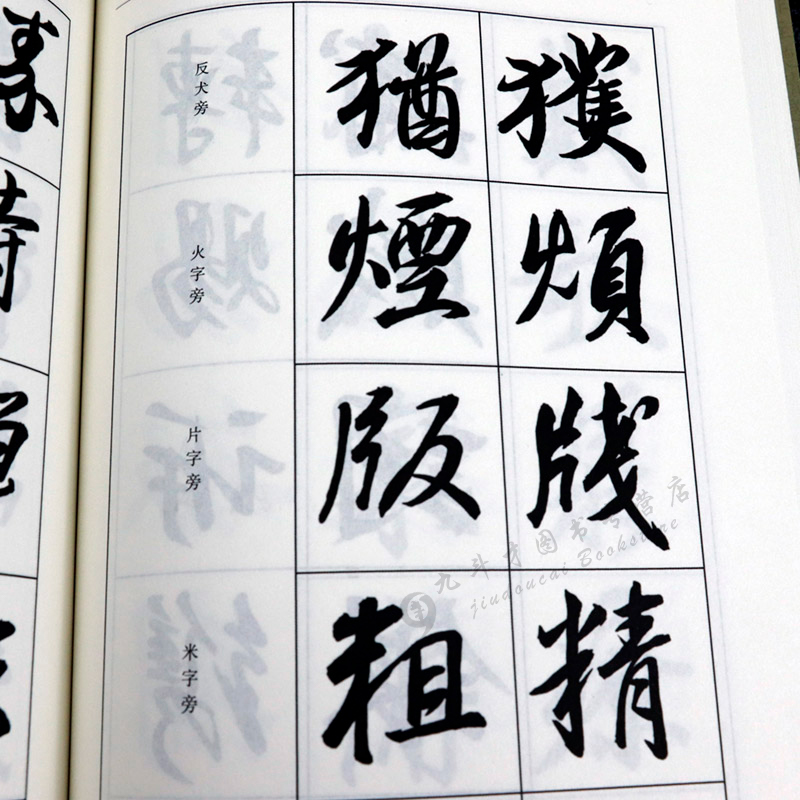 反犬旁 猶 獲
火字旁 煙 煩
片字旁 版 牋
米字旁 粗 精
九斗才图书专营店
jiudoucai Bookstore